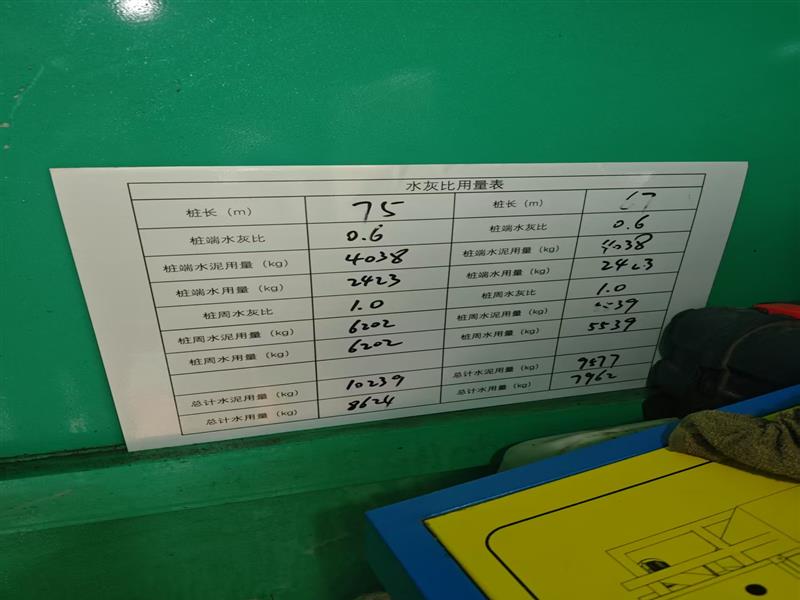 水灰比用量表
桩长（m） 75 桩长（m） 67
桩端水灰比 0.6 桩端水灰比 0.6
桩端水泥用量（kg） 4038 桩端水泥用量（kg） 4038
桩端水用量（kg） 2423 桩端水用量（kg） 2423
桩周水灰比 1.0 桩周水灰比 1.0
桩周水泥用量（kg） 6202 桩周水泥用量（kg）
桩周水用量（kg） 6202 桩周水用量（kg） 5539
总计水泥用量（kg） 10239 总计水泥用量（kg） 9577
总计水用量（kg） 8624 总计水用量（kg） 7962